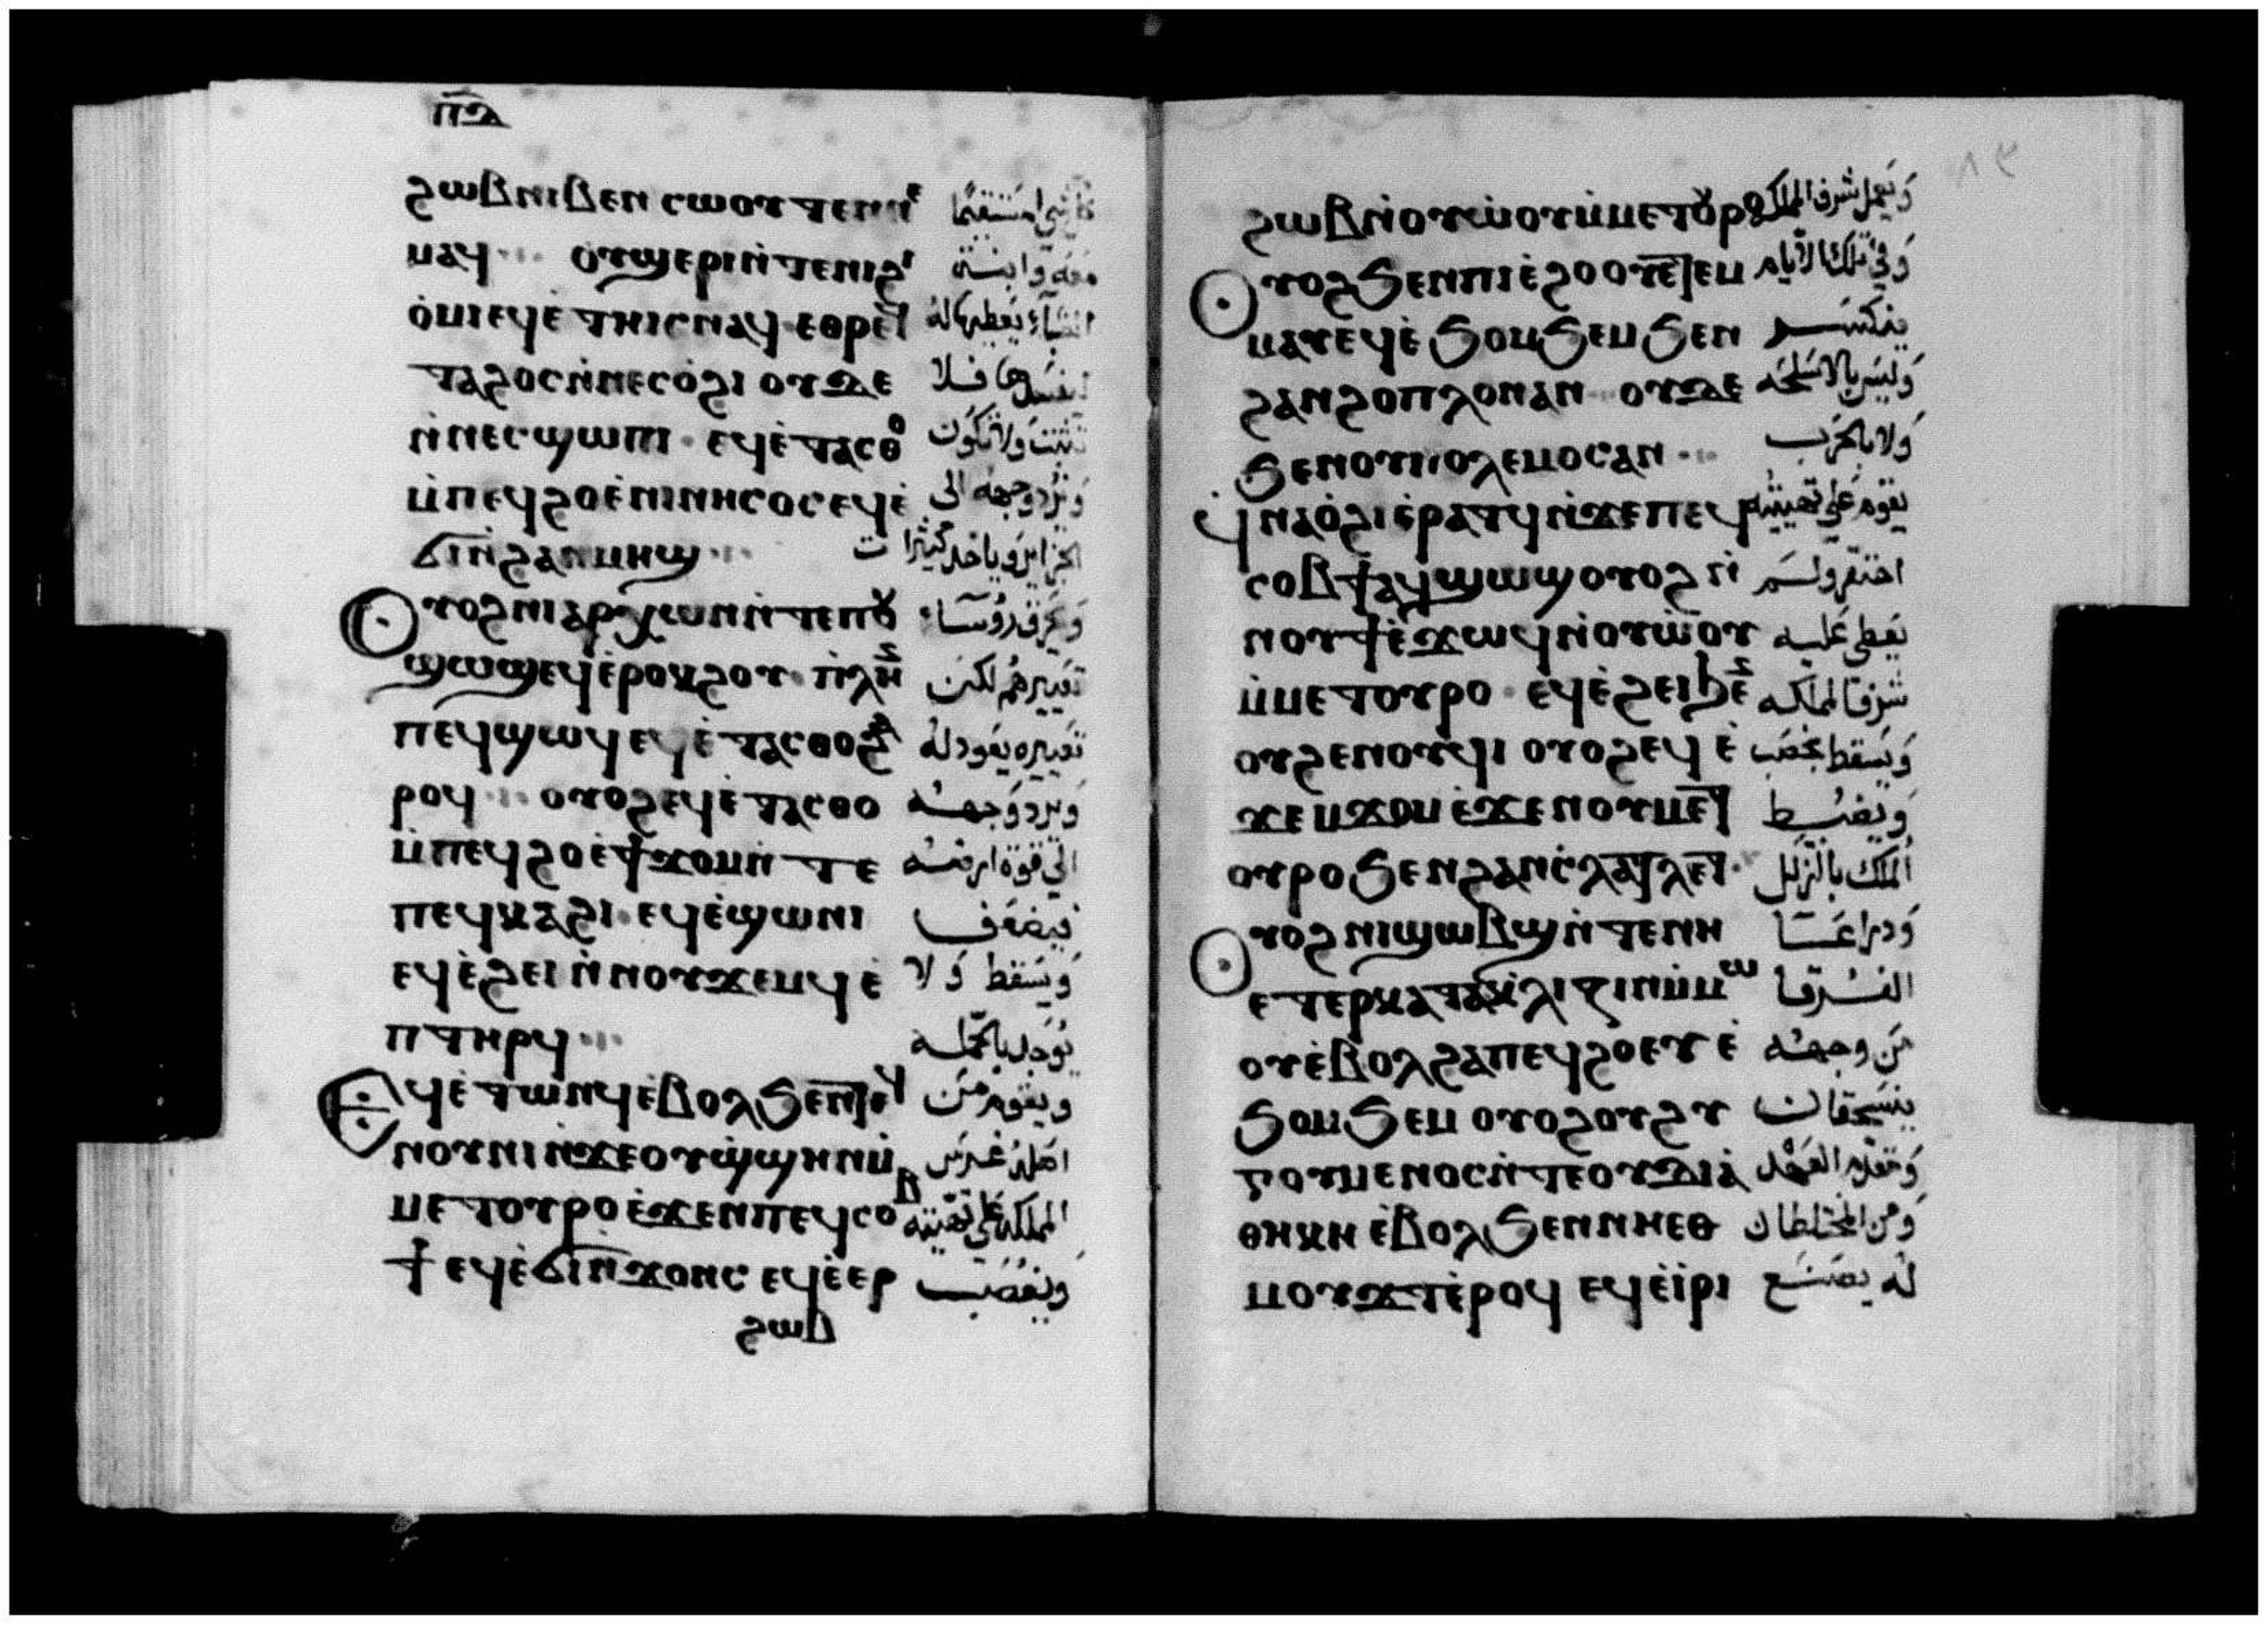 ⲡⲇ
ϩⲱⲃ ⲛⲓⲃⲉⲛ ⲥⲱⲟⲩⲧⲉⲛ ⲛⲉ
ⲙⲁϥ ⲟⲩϣⲉⲣⲓ ⲛ̀ⲧⲉ ⲛⲓϩⲓ
ⲟ̀ⲙⲓ ⲉϥⲉ̀ⲧⲏⲓⲥ ⲛⲁϥ ⲉⲑⲣⲉϥ
ⲧⲁϩⲟⲥ ⲛ̀ⲛⲉⲥⲟ̀ϩⲓ ⲟⲩⲇⲉ فلا
ⲛ̀ⲛⲉⲥϣⲱⲡⲓ ⲉϥⲉ̀ⲧⲁⲥⲑⲟ ولا تكون
ⲙ̀ⲡⲉϥϩⲟ ⲉ̀ⲛⲓⲛⲏⲥⲟⲥ ⲉϥⲉ̀ ويرد وجهه الى
ϭⲓ ⲛ̀ϩⲁⲛⲙⲏϣ الجزاير وياخد كثيرات
ⲟⲩⲟϩ ⲛⲓⲁⲣⲭⲱⲛ ⲛ̀ⲧⲉ ⲡⲟⲩ
ϣⲱϣ ⲉϥⲉ̀ⲣⲟⲕϩⲟⲩ ⲡ̀ⲗⲏⲛ تعييرهم لكن
ⲡⲉϥϣⲱϥ ⲉϥⲉ̀ⲧⲁⲥⲑⲟϥ ⲉ̀ تعييره يعود له
ⲣⲟϥ ⲟⲩⲟϩ ⲉϥⲉ̀ⲧⲁⲥⲑⲟ ويرد وجهه
ⲙ̀ⲡⲉϥϩⲟ ⲉ̀ϯϫⲟⲙ ⲛ̀ⲧⲉ الي قوة ارضه
ⲡⲉϥⲕⲁϩⲓ ⲉϥⲉ̀ϣⲱⲛⲓ فيضعف
ⲉϥⲉ̀ϩⲉⲓ ⲛ̀ⲛⲟⲩϫⲉⲙϥ ⲉ̀ ويسقط ولا
ⲡⲧⲏⲣϥ يوجد بالجمله
ⲉϥⲉ̀ⲧⲱⲛϥ ⲉ̀ⲃⲟⲗ ϧⲉⲛ ⲧⲉϥ ويقوم من
ⲛⲟⲩⲛⲓ ⲛ̀ϫⲉ ⲟⲩϣ̀ϣⲏⲛ ⲙ̀ اصله غرس
ⲙⲉⲧⲟⲩⲣⲟ ⲉ̀ϫⲉⲛ ⲡⲉϥⲥⲟⲃ المملكة على تهيئته
ϯ ⲉϥⲉ̀ϭⲓ ⲛ̀ϫⲟⲛⲥ ⲉϥⲉ̀ⲉⲣ ويغصب
ϩⲱⲃ
ϩⲱⲃ ⲛ̀ⲟⲩⲱ̀ⲟⲩ ⲙ̀ⲙⲉⲧⲟⲩⲣⲟ ويعمل شرف الملك
ⲟⲩⲟϩ ϧⲉⲛ ⲡⲓⲉ̀ϩⲟⲟⲩ ⲉⲧⲉⲙ وفي تلك الايام
ⲙⲁⲩ ⲉϥⲉ̀ϧⲟⲙϧⲉⲙ ϧⲉⲛ ينكسر
ϩⲁⲛϩⲟⲡⲗⲟⲛ ⲁⲛ ⲟⲩⲇⲉ وليس بالاسلحه
ϧⲉⲛ ⲟⲩⲡⲟⲗⲉⲙⲟⲥ ⲁⲛ ولا بالحرب
ϥⲛⲁⲟ̀ϩⲓ ⲉ̀ⲣⲁⲧϥ ⲛ̀ϫⲉ ⲡⲉϥ يقوم على تهيئته
ⲥⲟⲃϯ ⲁϥϣⲱϣ ⲟⲩⲟϩ ⲛ̀ احتقر ولم
ⲛⲟⲩϯ ⲉ̀ϫⲱϥ ⲛ̀ⲟⲩⲱ̀ⲟⲩ يعطى عليه
ⲙ̀ⲙⲉⲧⲟⲩⲣⲟ ⲉϥⲉ̀ϩⲉⲓ ϧⲉⲛ شرف المملكه
ⲟⲩϩⲉⲛⲟⲩϥⲓ ⲟⲩⲟϩ ⲉϥⲉ̀ ويسقط بخصب
ϫⲉⲙϫⲟⲙ ⲉ̀ϫⲉⲛ ⲟⲩⲙⲉⲧ
ⲟⲩⲣⲟ ϧⲉⲛ ϩⲁⲛⲥ̀ⲗⲁⲧⲗⲉⲧ الملك بالزلل
ⲟⲩⲟϩ ⲛⲓϣⲱⲃϣ ⲛ̀ⲧⲉ ⲛⲏ
ⲉⲧⲉⲣⲕⲁⲧⲁⲕⲗⲓⲍⲓⲛ ⲙ̀ⲙⲱ
ⲟⲩ ⲉ̀ⲃⲟⲗ ϩⲁ ⲡⲉϥϩⲟ ⲉⲩⲉ̀ من وجهه
ϧⲟⲙϧⲉⲙ ⲟⲩⲟϩ ⲟⲩϩⲩ ينسحقان
ⲅⲟⲩⲙⲉⲛⲟⲥ ⲛ̀ⲧⲉ ⲟⲩⲇⲓⲁ̀ ومقدم العهد
ⲑⲏⲕⲏ ⲉ̀ⲃⲟⲗ ϧⲉⲛ ⲛⲏⲉⲑ ومن المختلطان
ⲙⲟⲩϫⲧ ⲉ̀ⲣⲟϥ ⲉϥⲉ̀ⲓⲣⲓ له يصنع